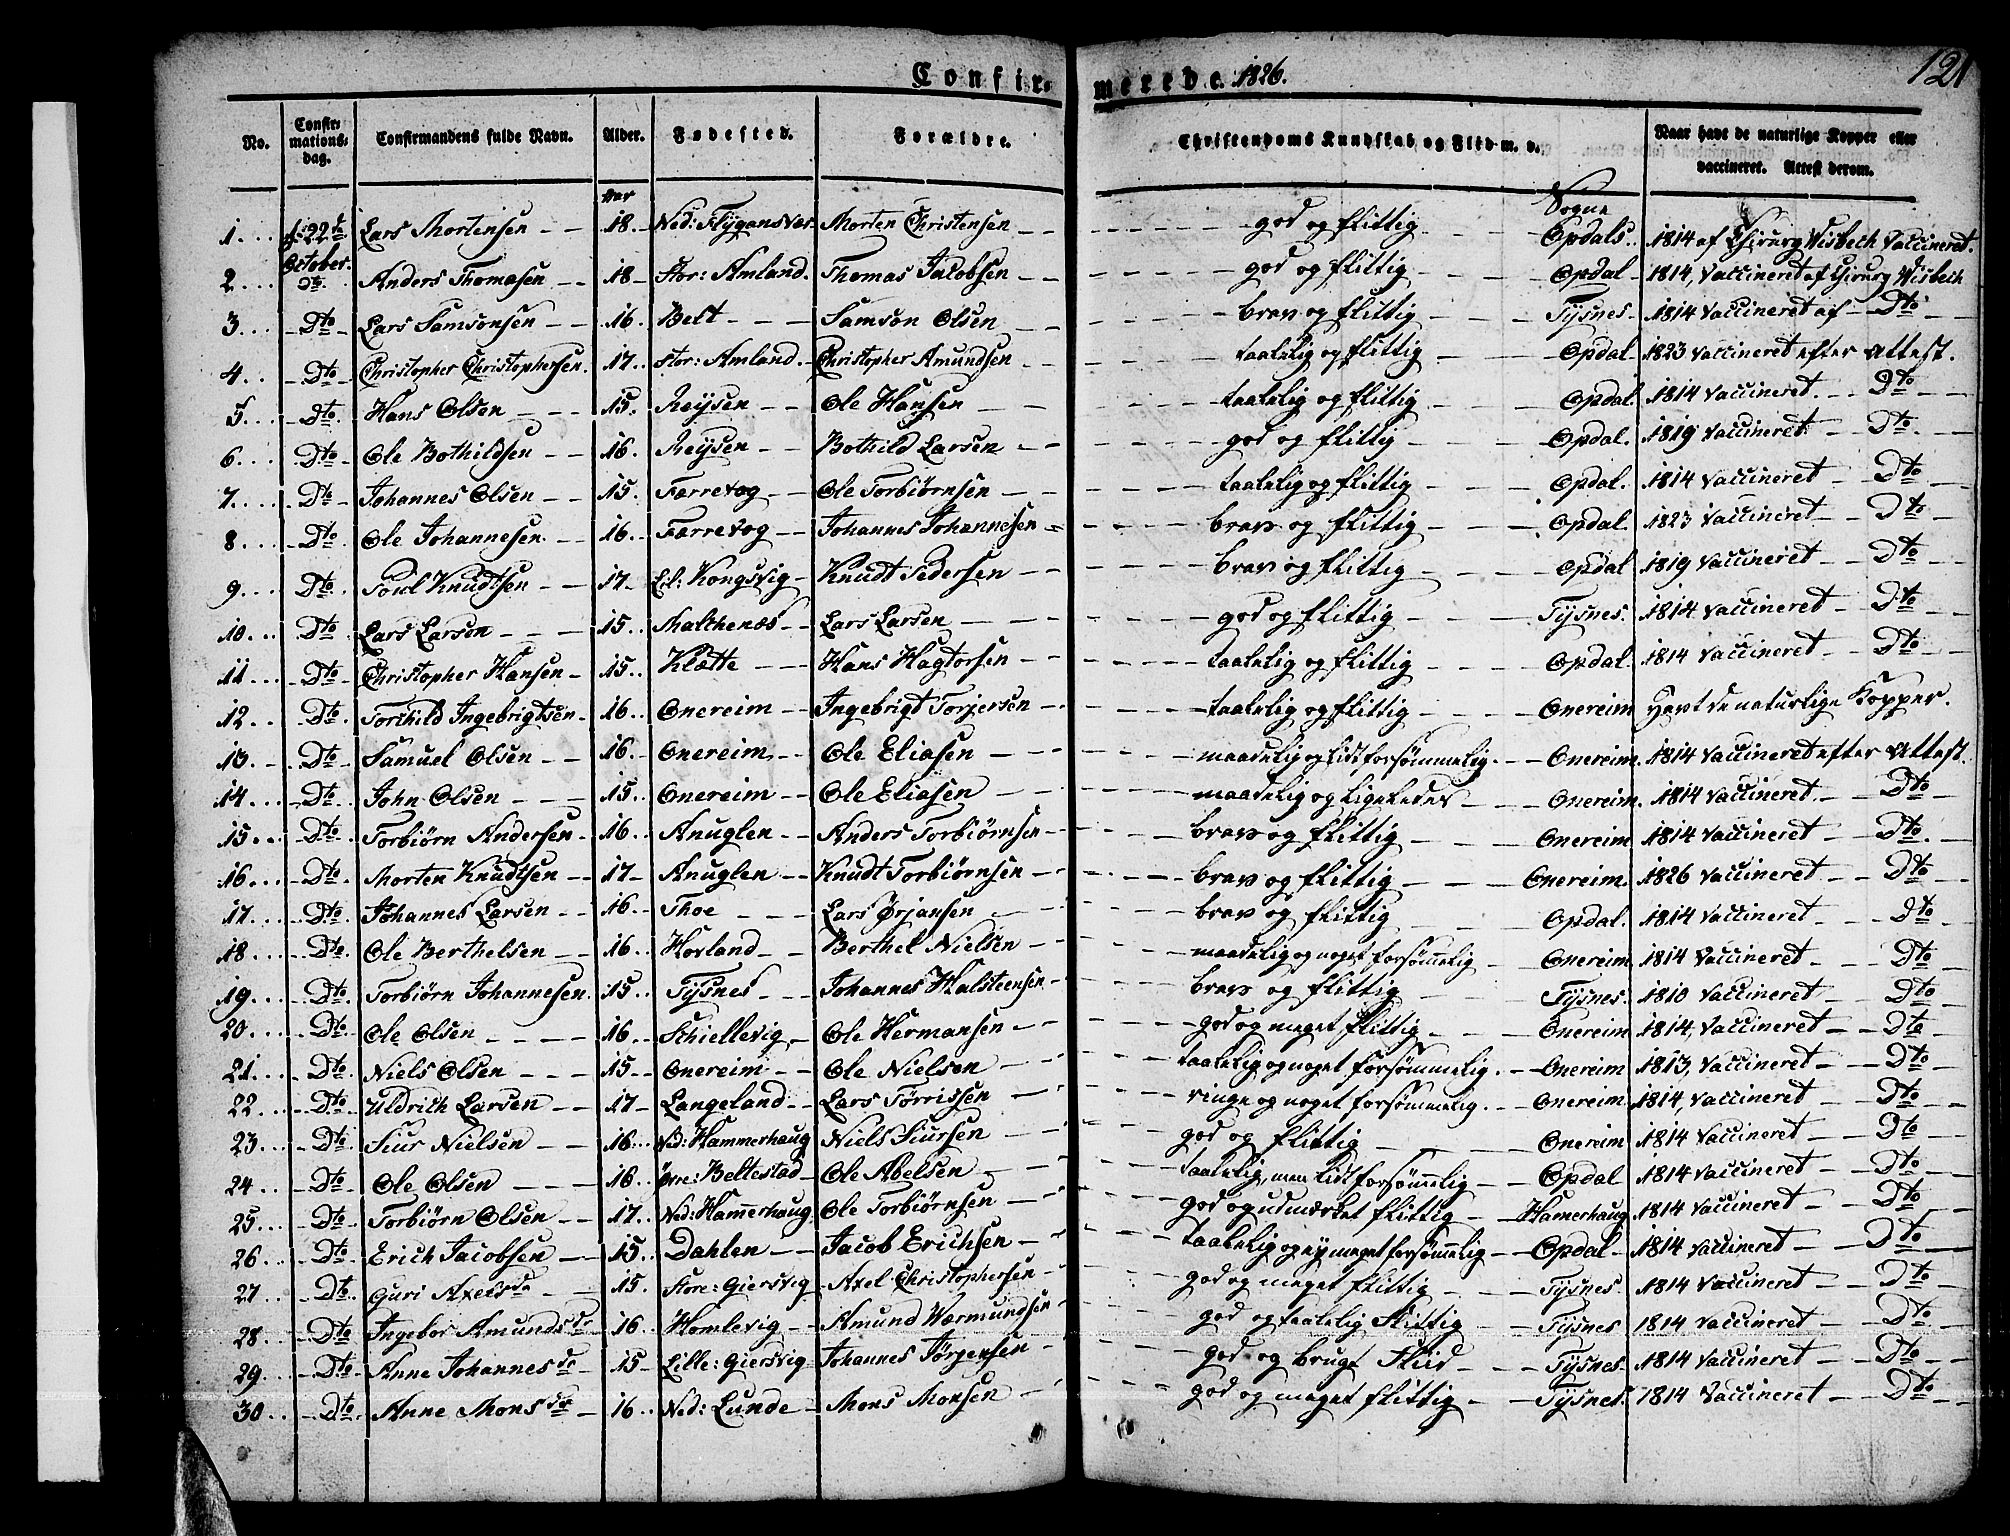 Confirmerede 1826. 121
No. Confirmationsdag. Confirmandens fulde Navn. Alder. Fødested. Forældre. Christendoms Kundskab og Flid m. v. Naar havt de naturlige Kopper eller vaccineret. Attest derom.
Aar Sogne
1 22de October. Lars Mortensen 18 Ned: Flygansvær Morten Christensen god og flittig Opdals 1814 af Chirurg Wisbech Vaccineret.
2 Dto Anders Thomasen 18 Stor: Amland Thomas Jacobsen god og flittig Opdal 1814, Vaccineret af Chirurg Wisbech
3 Dto Lars Samsonsen 16 Belt Samson Olsen brav og flittig Tysnes 1814 Vaccineret af Dto
4 Dto Christopher Christophersen 17 Stor: Amland Christopher Amundsen taalelig og flittig Opdal 1823 Vaccineret efter Attest.
5 Dto Hans Olsen 15 Reysen Ole Hansen taalelig og flittig Opdal 1814 Vaccineret Dto
6 Dto Ole Bothildsen 16 Reysen Bothild Larsen god og flittig Opdal 1819 Vaccineret Dto
7 Dto Johannes Olsen 15 Færrevog Ole Torbiørnsen taalelig og flittig Opdal 1814 Vaccineret Dto
8 Dto Ole Johannesen 16 Færrevog Johannes Johannesen brav og flittig Opdal 1823 Vaccineret Dto
9 Dto Poul Knudtsen 17 Lil: Kongsvig Knudt Pedersen brav og flittig Opdal 1819 Vaccineret Dto
10 Dto Lars Larsen 15 Malthenæs Lars Larsen god og flittig Tysnes 1814 Vaccineret Dto
11 Dto Christopher Hansen 15 Klætte Hans Hagtorsen taalelig og flittig Opdal 1814 Vaccineret Dto
12 Dto Torchild Ingebrigtsen 16 Onereim Ingebrigt Torjersen taalelig og flittig Onereim Havt de naturlige Kopper.
13 Dto Samuel Olsen 16 Onereim Ole Eliasen maadelig og lidt forsømmelig Onereim 1814 Vaccineret efter Attest.
14 Dto John Olsen 15 Onereim Ole Eliasen maadelig og ligeledes Onereim 1814 Vaccineret Dto
15 Dto Torbiørn Andersen 16 Anuglen Anders Torbiørnsen brav og flittig Onereim 1814 Vaccineret Dto
16 Dto Morten Knudtsen 17 Anuglen Knudt Torbiørnsen brav og flittig Onereim 1826 Vaccineret Dto
17 Dto Johannes Larsen 16 Thoe Lars Ørjansen brav og flittig Opdal 1814 Vaccineret Dto
18 Dto Ole Berthelsen 16 Hovland Berthel Nielsen maadelig og noget forsømelig Onereim 1814 Vaccineret Dto
19 Dto Torbiørn Johannesen 15 Tysnes Johannes Halsteensen brav og flittig Tysnes 1810 Vaccineret Dto
20 Dto Ole Olsen 16 Schiellevig Ole Hermansen god og meget flittig Onereim 1814, Vaccineret Dto
21 Dto Niels Olsen 15 Onereim Ole Nielsen taalelig og noget forsømmelig Onereim 1813, Vaccineret Dto
22 Dto Uldrich Larsen 17 Langeland Lars Tørrissen ringe og noget forsømmelig Onereim 1814, Vaccineret Dto
23 Dto Siur Nielsen 16 Ned: Hammerhaug Niels Siursen god og flittig Onereim 1814 Vaccineret Dto
24 Dto Ole Olsen 16 Øvre: Beltestad Ole Abelsen taalelig, men lidt forsømelig Opdal 1814 Vaccineret Dto
25 Dto Torbiørn Olsen 17 Ned: Hamerhaug Ole Torbiørnsen god og udmærket flittig Hamerhaug 1814 Vaccineret Dto
26 Dto Erich Jacobsen 15 Dahlen Jacob Erichsen taalelig og ey meget forsømelig Opdal 1814 Vaccineret Dto
27 Dto Guri Axelsdr 15 Store: Giersvig Axel Christophersen god og meget flittig Tysnes 1814 Vaccineret Dto
28 Dto Ingebor Amundsdr 16 Homlevig Amund Wærmundsen god og taalelig flittig Tysnes 1814 Vaccineret Dto
29 Dto Anne Johannesdr 15 Lille: Giersvig Johannes Jørgensen god og brugt Fliid Tysnes 1814 Vaccineret Dto
30 Dto Anne Monsdr 16 Ned: Lunde Mons Monsen god og meget flittig Tysnes 1814 Vaccineret Dto